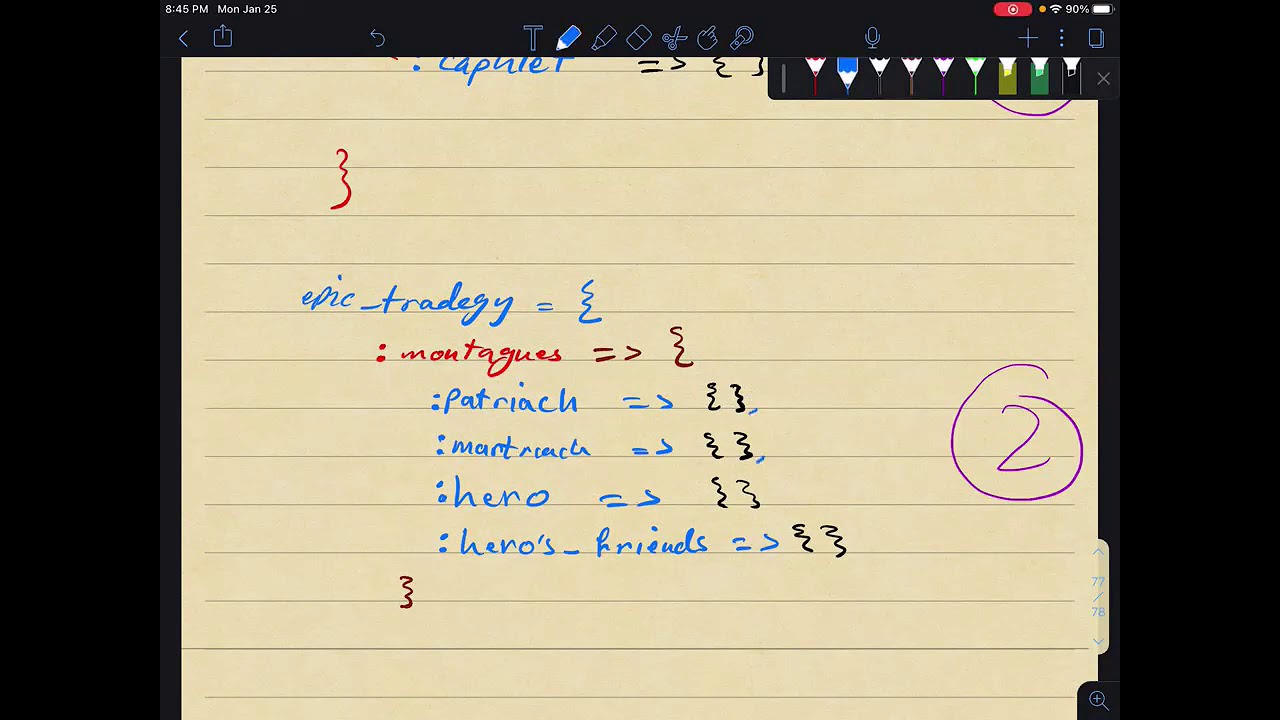 8:45 PM Mon Jan 25
90%
T
: capulet => { }
}
epic_tradegy = {
: montagues => {
:patriach => {},
:martriach => {},
:hero => {}
:hero's_friends => {}
}
2
77
/
78